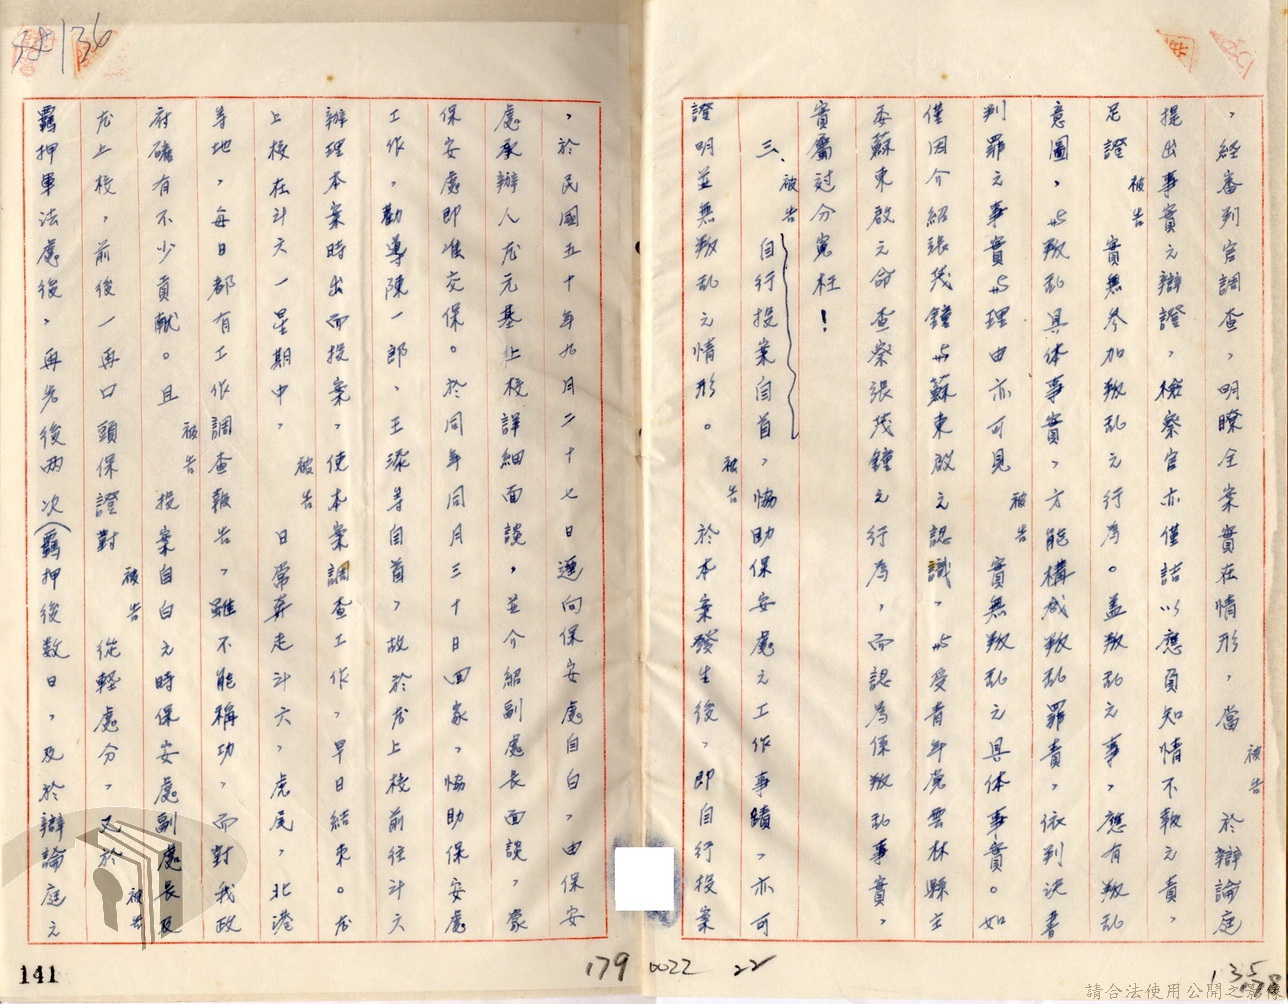 ，經審判官調查，明瞭全案實在情形，當被告於辯論庭
提出事實之辯證，檢察官亦僅詰以應負知情不報之責，
足證被告實無參加叛乱之行為。蓋叛乱之事，應有叛乱
意圖，与叛乱具体事實，方能構成叛乱罪責，依判決書
判罪之事實与理由亦可見被告實無叛乱之具体事實。如
僅因介紹張茂鐘与蘇東啟之認識，与受青年党雲林縣主
委蘇東啟之命查察張茂鐘之行为，而認為係叛乱事實，
實屬过分冤枉！
三、被告自行投案自首，協助保安處之工作事蹟，亦可
證明並無叛乱之情形。被告於本案發生後，即自行投案
，於民國五十年九月二十七日逕向保安處自白，由保安
處承辦人尤元基上校詳細面談，並介紹副處长面談，蒙
保安處即准交保。於同年同月三十日回家，協助保安處
工作，勸導陳一郎，王添等自首，故於尤上校前往斗六
辦理本案時出而投案，使本案調查工作，早日結束。尤
上校在斗六一星期中，被告日常奔走斗六，虎尾，北港
等地，每日都有工作調查報告，雖不能稱功，而對我政
府確有不少貢献。且被告投案自白之時保安處副處长及
尤上校，前後一再口頭保證對被告從輕處分，又於被告
羈押軍法處後，再先後两次（羈押後数日，及於辯論庭之
58 136
141
179 0022 22
135
請合法使用公開之影像